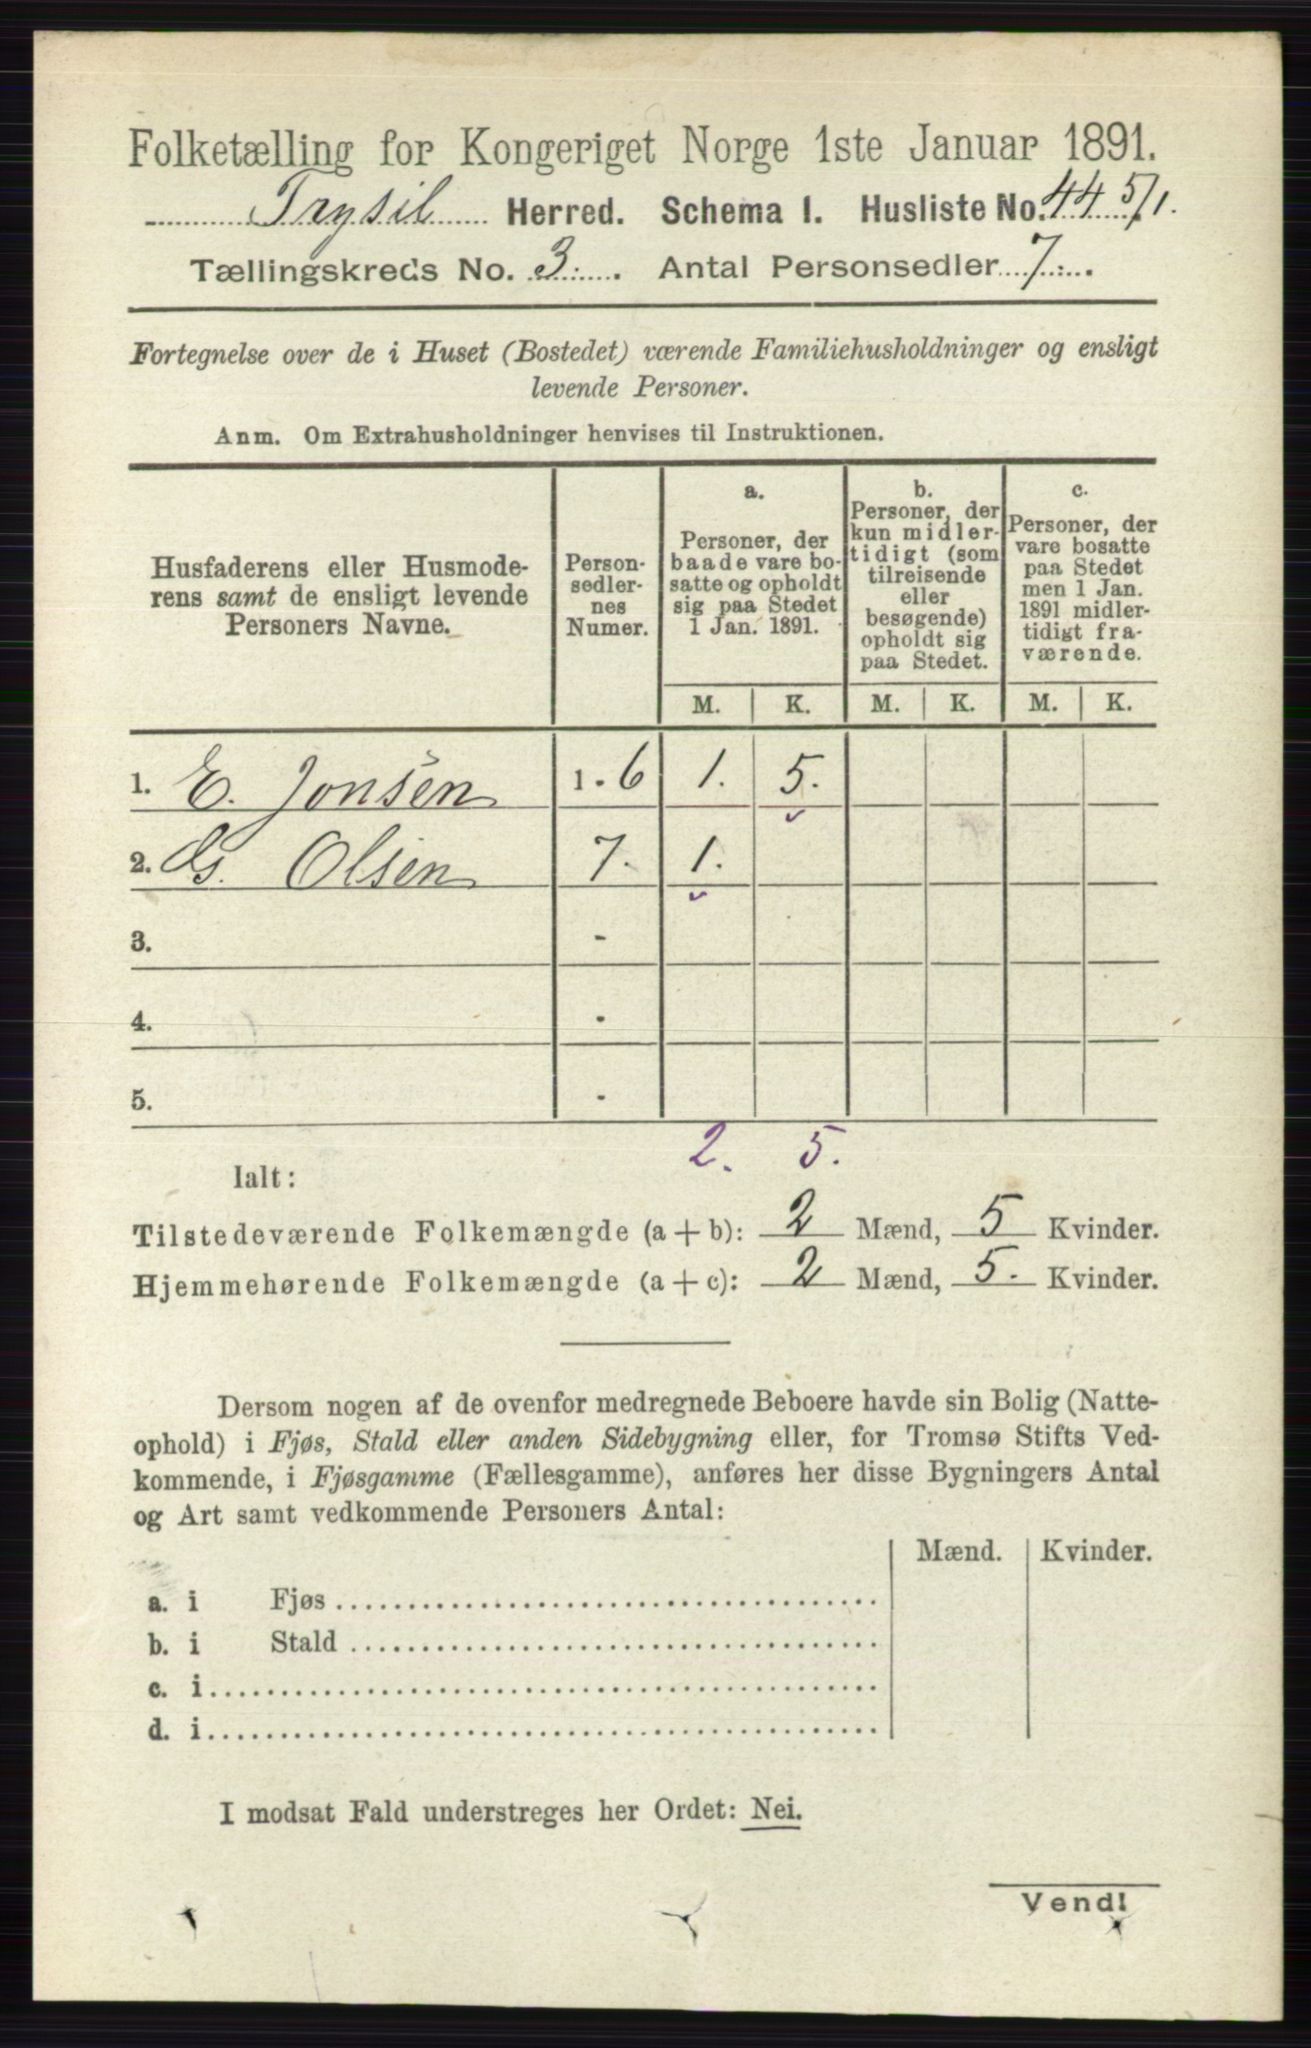 Folketælling for Kongeriget Norge 1ste Januar 1891.
Trysil Herred. Schema 1. Husliste No. 445/1.
Tællingskreds No. 3. Antal Personsedler 7.
Fortegnelse over de i Huset (Bostedet) værende Familiehusholdninger og ensligt
levende Personer.
Anm. Om Extrahusholdninger henvises til Instruktionen.
Husfaderens eller Husmode-
rens samt de ensligt levende
Personers Navne.
Person-
sedler-
nes
Numer.
a.
Personer, der
baade vare bo-
satte og opholdt
sig paa Stedet
1 Jan. 1891.
b.
Personer, der
kun midler-
tidigt (som
tilreisende
eller
besøgende)
opholdt sig
paa Stedet.
c.
Personer, der
vare bosatte
paa Stedet
men 1 Jan.
1891 midler-
tidigt fra-
værende.
M. K. M. K. M. K.
1. E. Jonsen 1 - 6 1. 5.
2. G. Olsen 7. 1.
3. -
4. -
5. -
2. 5.
Ialt:
Tilstedeværende Folkemængde (a + b): 2 Mænd, 5 Kvinder.
Hjemmehørende Folkemængde (a + c): 2 Mænd, 5. Kvinder.
Dersom nogen af de ovenfor medregnede Beboere havde sin Bolig (Natte-
ophold) i Fjøs, Stald eller anden Sidebygning eller, for Tromsø Stifts Ved-
kommende, i Fjøsgamme (Fællesgamme), anføres her disse Bygningers Antal
og Art samt vedkommende Personers Antal:
Mænd. Kvinder.
a. i Fjøs
b. i Stald
c. i
d. i
I modsat Fald understreges her Ordet: Nei.
Vend!